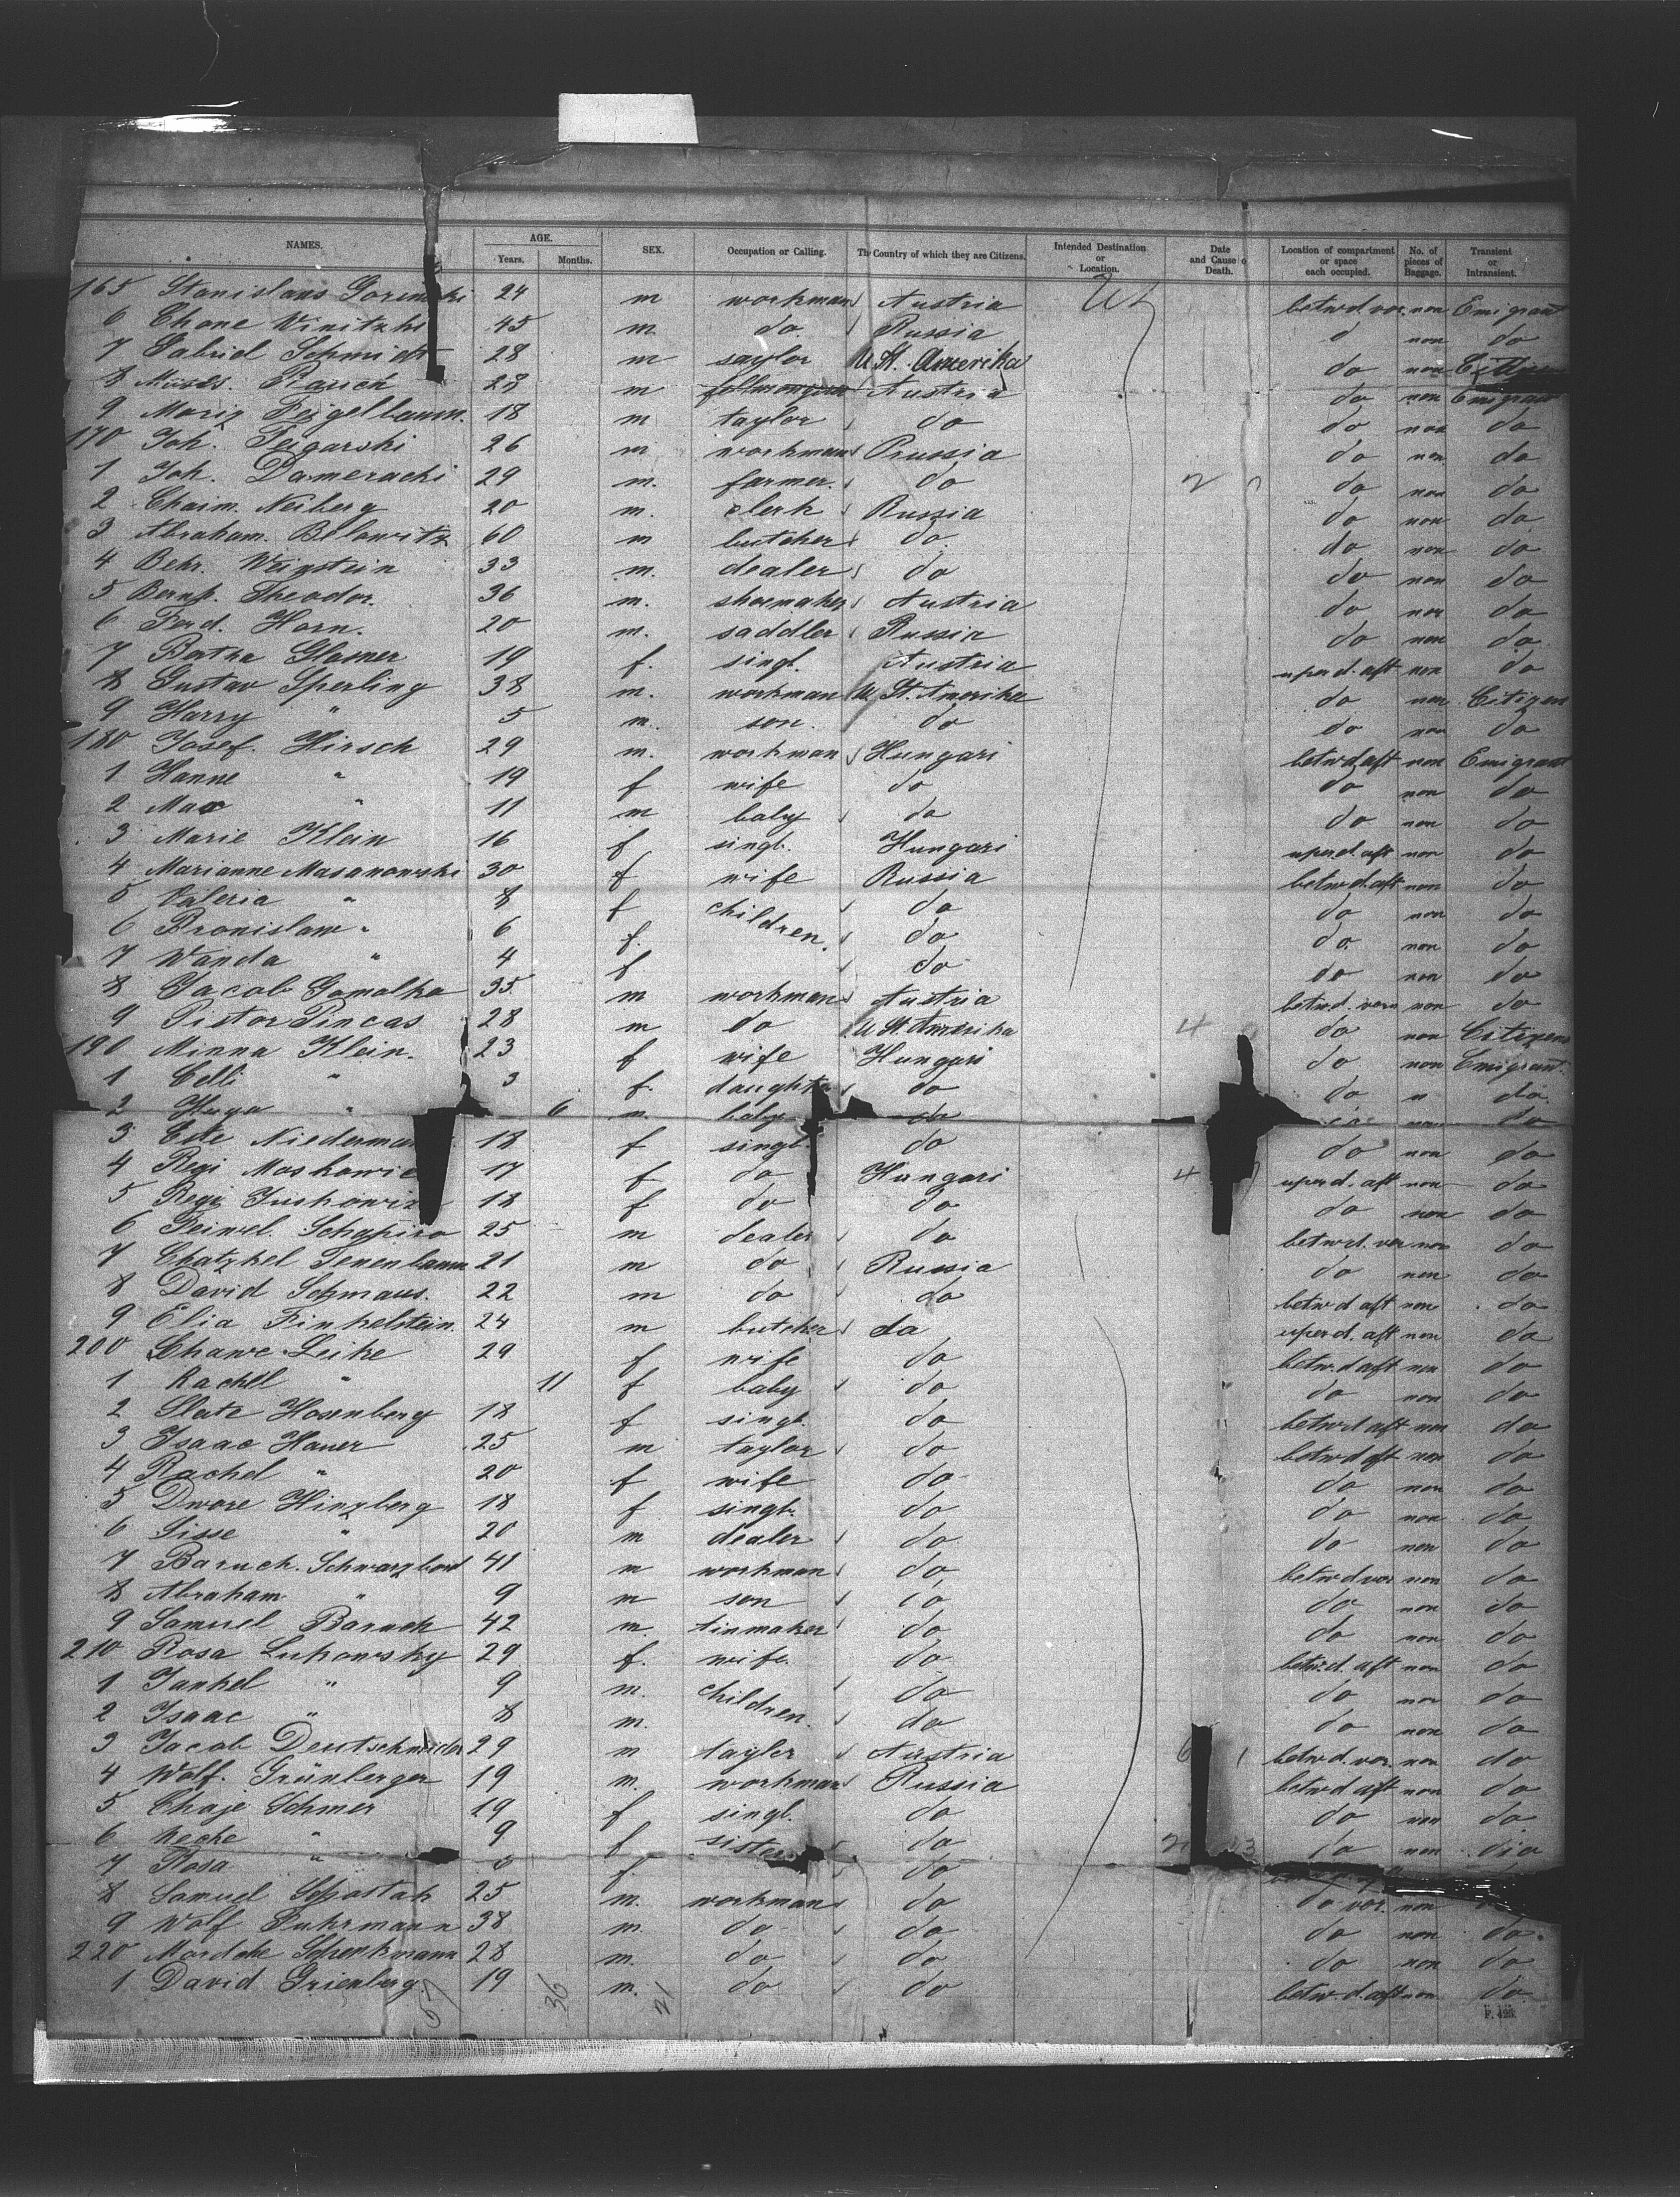 NAMES. AGE. Years. Months. SEX. Occupation or Calling. The Country of which they are Citizens. Intended Destination or Location. Date and Cause of Death. Location of compartment or space each occupied. No. of pieces of Baggage. Transient or Intransient.
165 Stanislaus 24 m workman Austria betwd. vor. non Emigrant
6 Chane Winitzki 45 m. do Russia d non do
7 Gabriel Schmidt 28 m saylor U. St. Amerika do non
8 Moses 28 m Austria do non Emigrant
9 Moriz Feigelbaum. 18 m taylor do do non do
170 Joh. Peigarski 26 m workman Prussia do non do
1 Joh. Damerachi 29 m. farmer. do do non do
2 Chaim. Neiberg 20 m. clerk Russia do non do
3 Abraham. Belowitz 60 m butcher do. do non do
4 Behr. Weinstein 33 m. dealer do do non do
5 Bernh. Theodor. 36 m. shoemaker Austria do non do
6 Ferd. Horn. 20 m. saddler Russia do non do
7 Bertha Glasner 19 f. singl. Austria uperd. aft non do
8 Gustav Sperling 38 m. workman U St. Amerika do non Citizen
9 Harry " 5 m. son. do do non do
180 Josef. Hirsch 29 m. workman Hungari betwd aft non Emigrant
1 Hanne " 19 f wife do do non do
2 Max " 11 m baby do do non do
3 Marie Klein 16 f singl. Hungari uperd. aft non do
4 Marianne Masanowski 30 f wife Russia betwd. aft non do
5 Valeria " 8 f children. do do non do
6 Bronislaw " 6 f. do do. non do
7 Wanda " 4 f do do non do
8 Jacob Gomolka 35 m workman Austria betwd. vorn non do
9 Pistor Pincas 28 m do U St. Amerika 4 do non Citizen
190 Minna Klein. 23 f wife Hungari do non Emigrant.
1 Celli " 3 f. daughter do do n do.
2 Hugo " 6 m. baby do do non do
3 Este Niederman 18 f singl. do do non do
4 Regi Moskowic 17 f do Hungari 4 uperd. aft non do
5 Regi Juskowiz 18 f do do do non do
6 Feiwel. Schapiro 25 m dealer do betwd. vor non do
7 Chatzkel Tenenbaum 21 m do Russia do non do
8 David Schmaus. 22 m do do betwd aft non do
9 Elia Finkelstein. 24 m butcher do uperd. aft non do
200 Chawe Leike 29 f wife do betw. d aft non do
1 Rachel " 11 f baby do do non do
2 Slate Hosenberg 18 f singl. do betwd aft non do
3 Isaac Hauer 25 m taylor do betwd aft non do
4 Rachel " 20 f wife do do non do
5 Dwore Hinzberg 18 f singl. do do non do
6 Sisse " 20 m dealer do do non do
7 Baruch. Schwarzbord 41 m workman do betwd vor non do
8 Abraham " 9 m son do do non do
9 Samuel Baruch 42 m. tinmaker do do non do
210 Rosa Lukowsky 29 f. wife. do betw. d. aft non do
1 Jankel " 9 m. children. do do non do
2 Isaac " 8 m. do do non do
3 Jacob Deutschneider 29 m tayler Austria 6 1 betwd. vor. non do
4 Wolf. Grünberger 19 m. workman Russia betwd aft non do
5 Chaje Schmer 29 f singl. do do non do
6 Neche " 9 f sister do do non do
7 Rosa " f. do
8 Samuel Schostak 25 m. workman do do vor. non
9 Wolf Fuhrmann 38 m. do do do non do.
220 Mordche Schenkmann 28 m. do do do non do
1 David Grienberg 19 m. do do betw. d. aft non do
57 36 21